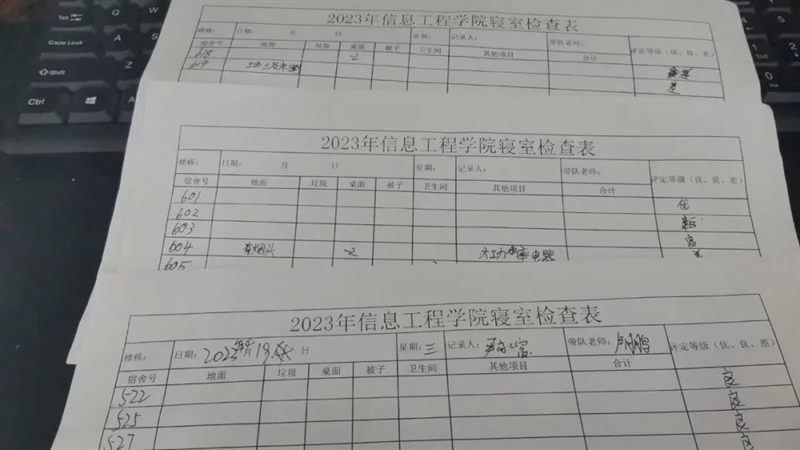 Tab
Caps Lock
Shift
Ctrl
Alt
2023年信息工程学院寝室检查表
楼栋： 日期： 月 日 星期： 记录人： 带队老师： 评定等级（优、良、差）
地面 垃圾 桌面 被子 卫生间 其他项目 合计
618 -2
619 差
2023年信息工程学院寝室检查表
楼栋： 日期： 月 日 星期： 记录人： 带队老师： 评定等级（优、良、差）
宿舍号 地面 垃圾 桌面 被子 卫生间 其他项目 合计
601 优
602
603 良
604 有烟头 -2 大功率电器
605
2023年信息工程学院寝室检查表
楼栋： 日期： 2023年 月19 日 星期：三 记录人： 带队老师： 评定等级（优、良、差）
宿舍号 地面 垃圾 桌面 被子 卫生间 其他项目 合计
522 良
525 良
527 良